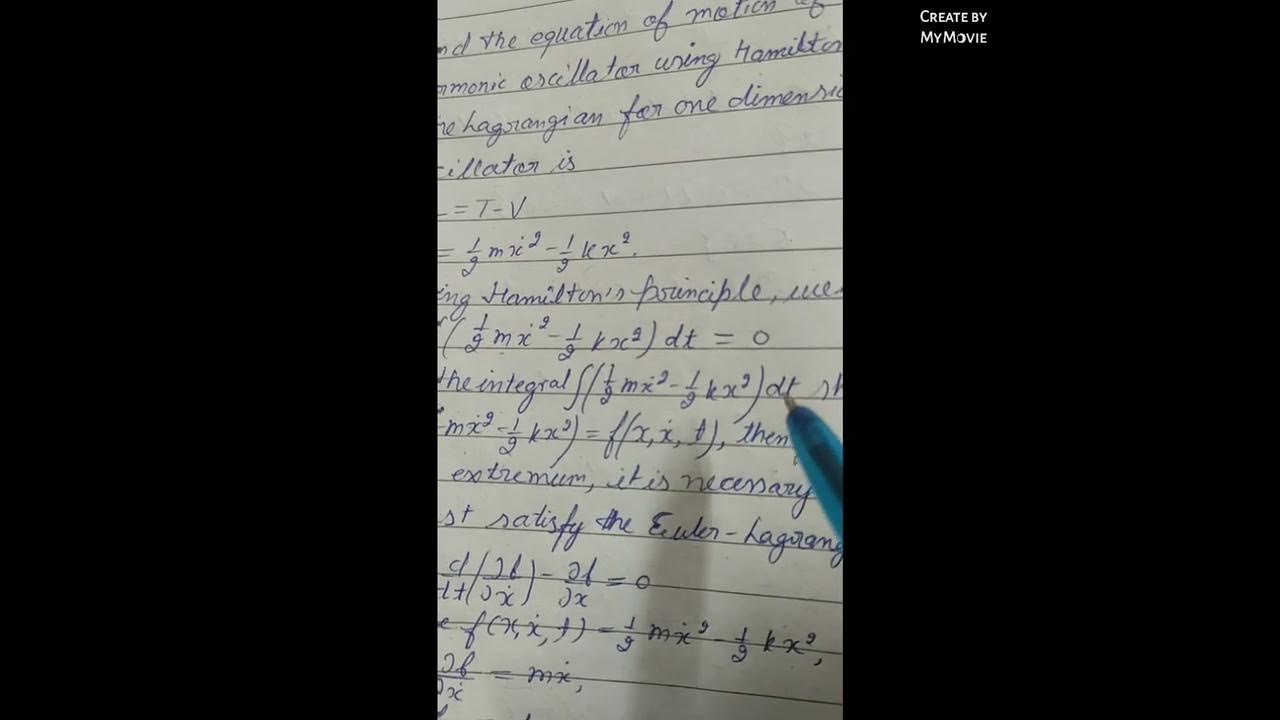 nd the equation of motion of
rmonic oscillator using Hamilton
he Lagrangian for one dimensio
cillator is
= T - V
= 1/2 mẋ² - 1/2 kx².
ing Hamilton's principle, we
(1/2 mẋ² - 1/2 kx²) dt = 0
the integral ∫(1/2 mẋ² - 1/2 kx²) dt sh
mẋ² - 1/2 kx²) = f(x, ẋ, t), then
extremum, it is necessary
st satisfy the Euler-Lagrang
d/dt (∂f/∂ẋ) - ∂f/∂x = 0
e f(x, ẋ, t) = 1/2 mẋ² - 1/2 kx²,
∂f/∂ẋ = mẋ,
CREATE BY
MYMOVIE